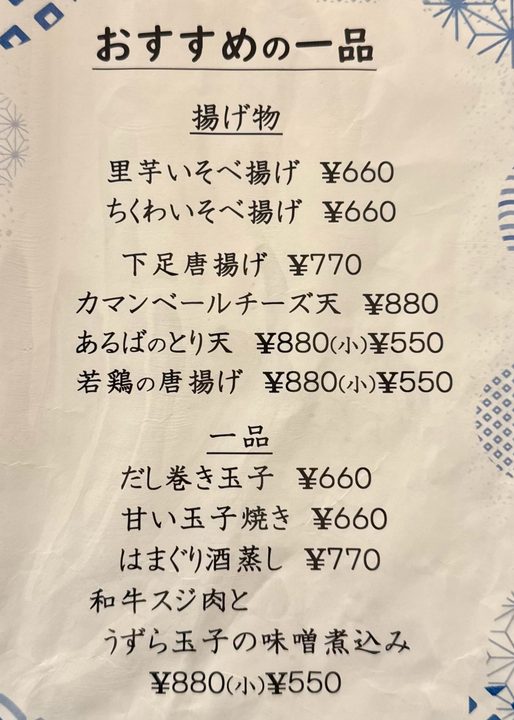 おすすめの一品
揚げ物
里芋いそべ揚げ ¥660
ちくわいそべ揚げ ¥660
下足唐揚げ ¥770
カマンベールチーズ天 ¥880
あるばのとり天 ¥880(小)¥550
若鶏の唐揚げ ¥880(小)¥550
一品
だし巻き玉子 ¥660
甘い玉子焼き ¥660
はまぐり酒蒸し ¥770
和牛スジ肉と
うずら玉子の味噌煮込み
¥880(小)¥550